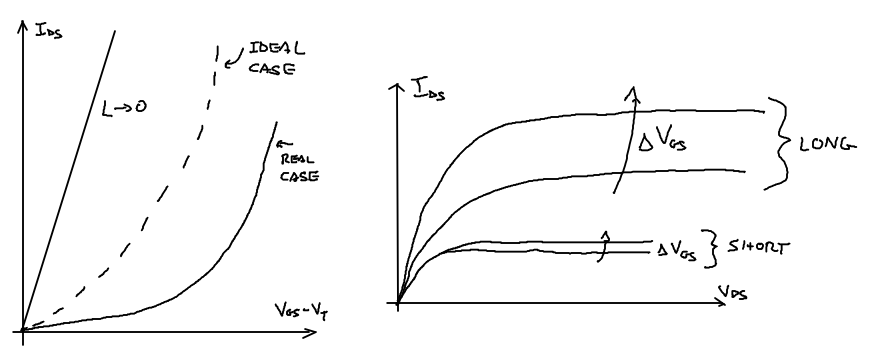 I_DS
IDEAL
CASE
L→0
REAL
CASE
V_GS-V_T
I_DS
ΔV_GS
LONG
ΔV_GS
SHORT
V_DS